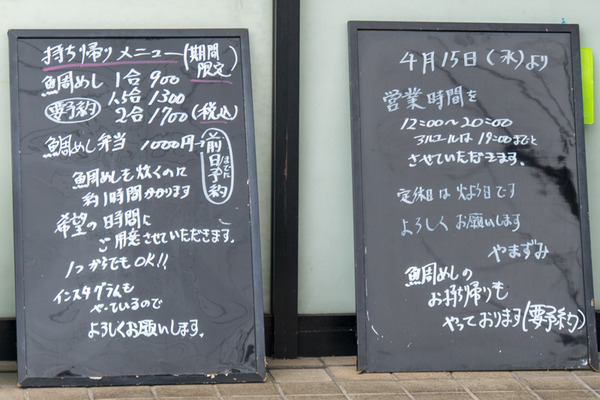 持ち帰りメニュー(期間限定)
鯛めし 1合 900
(要予約) 1.5合 1300
2合 1700(税込)
鯛めし弁当 1000円→前日までに予約
鯛めしも炊くのに
約1時間かかります
希望の時間に
ご用意させていただきます。
1つからでもOK!!
インスタグラムも
やっているので
よろしくお願いします。
4月15日(水)より
営業時間を
12:00〜20:00
アルコールは19:00までと
させていただきます。
定休日は火よう日です
よろしくお願いします
やまずみ
鯛めしの
お持ち帰りも
やっております(要予約)